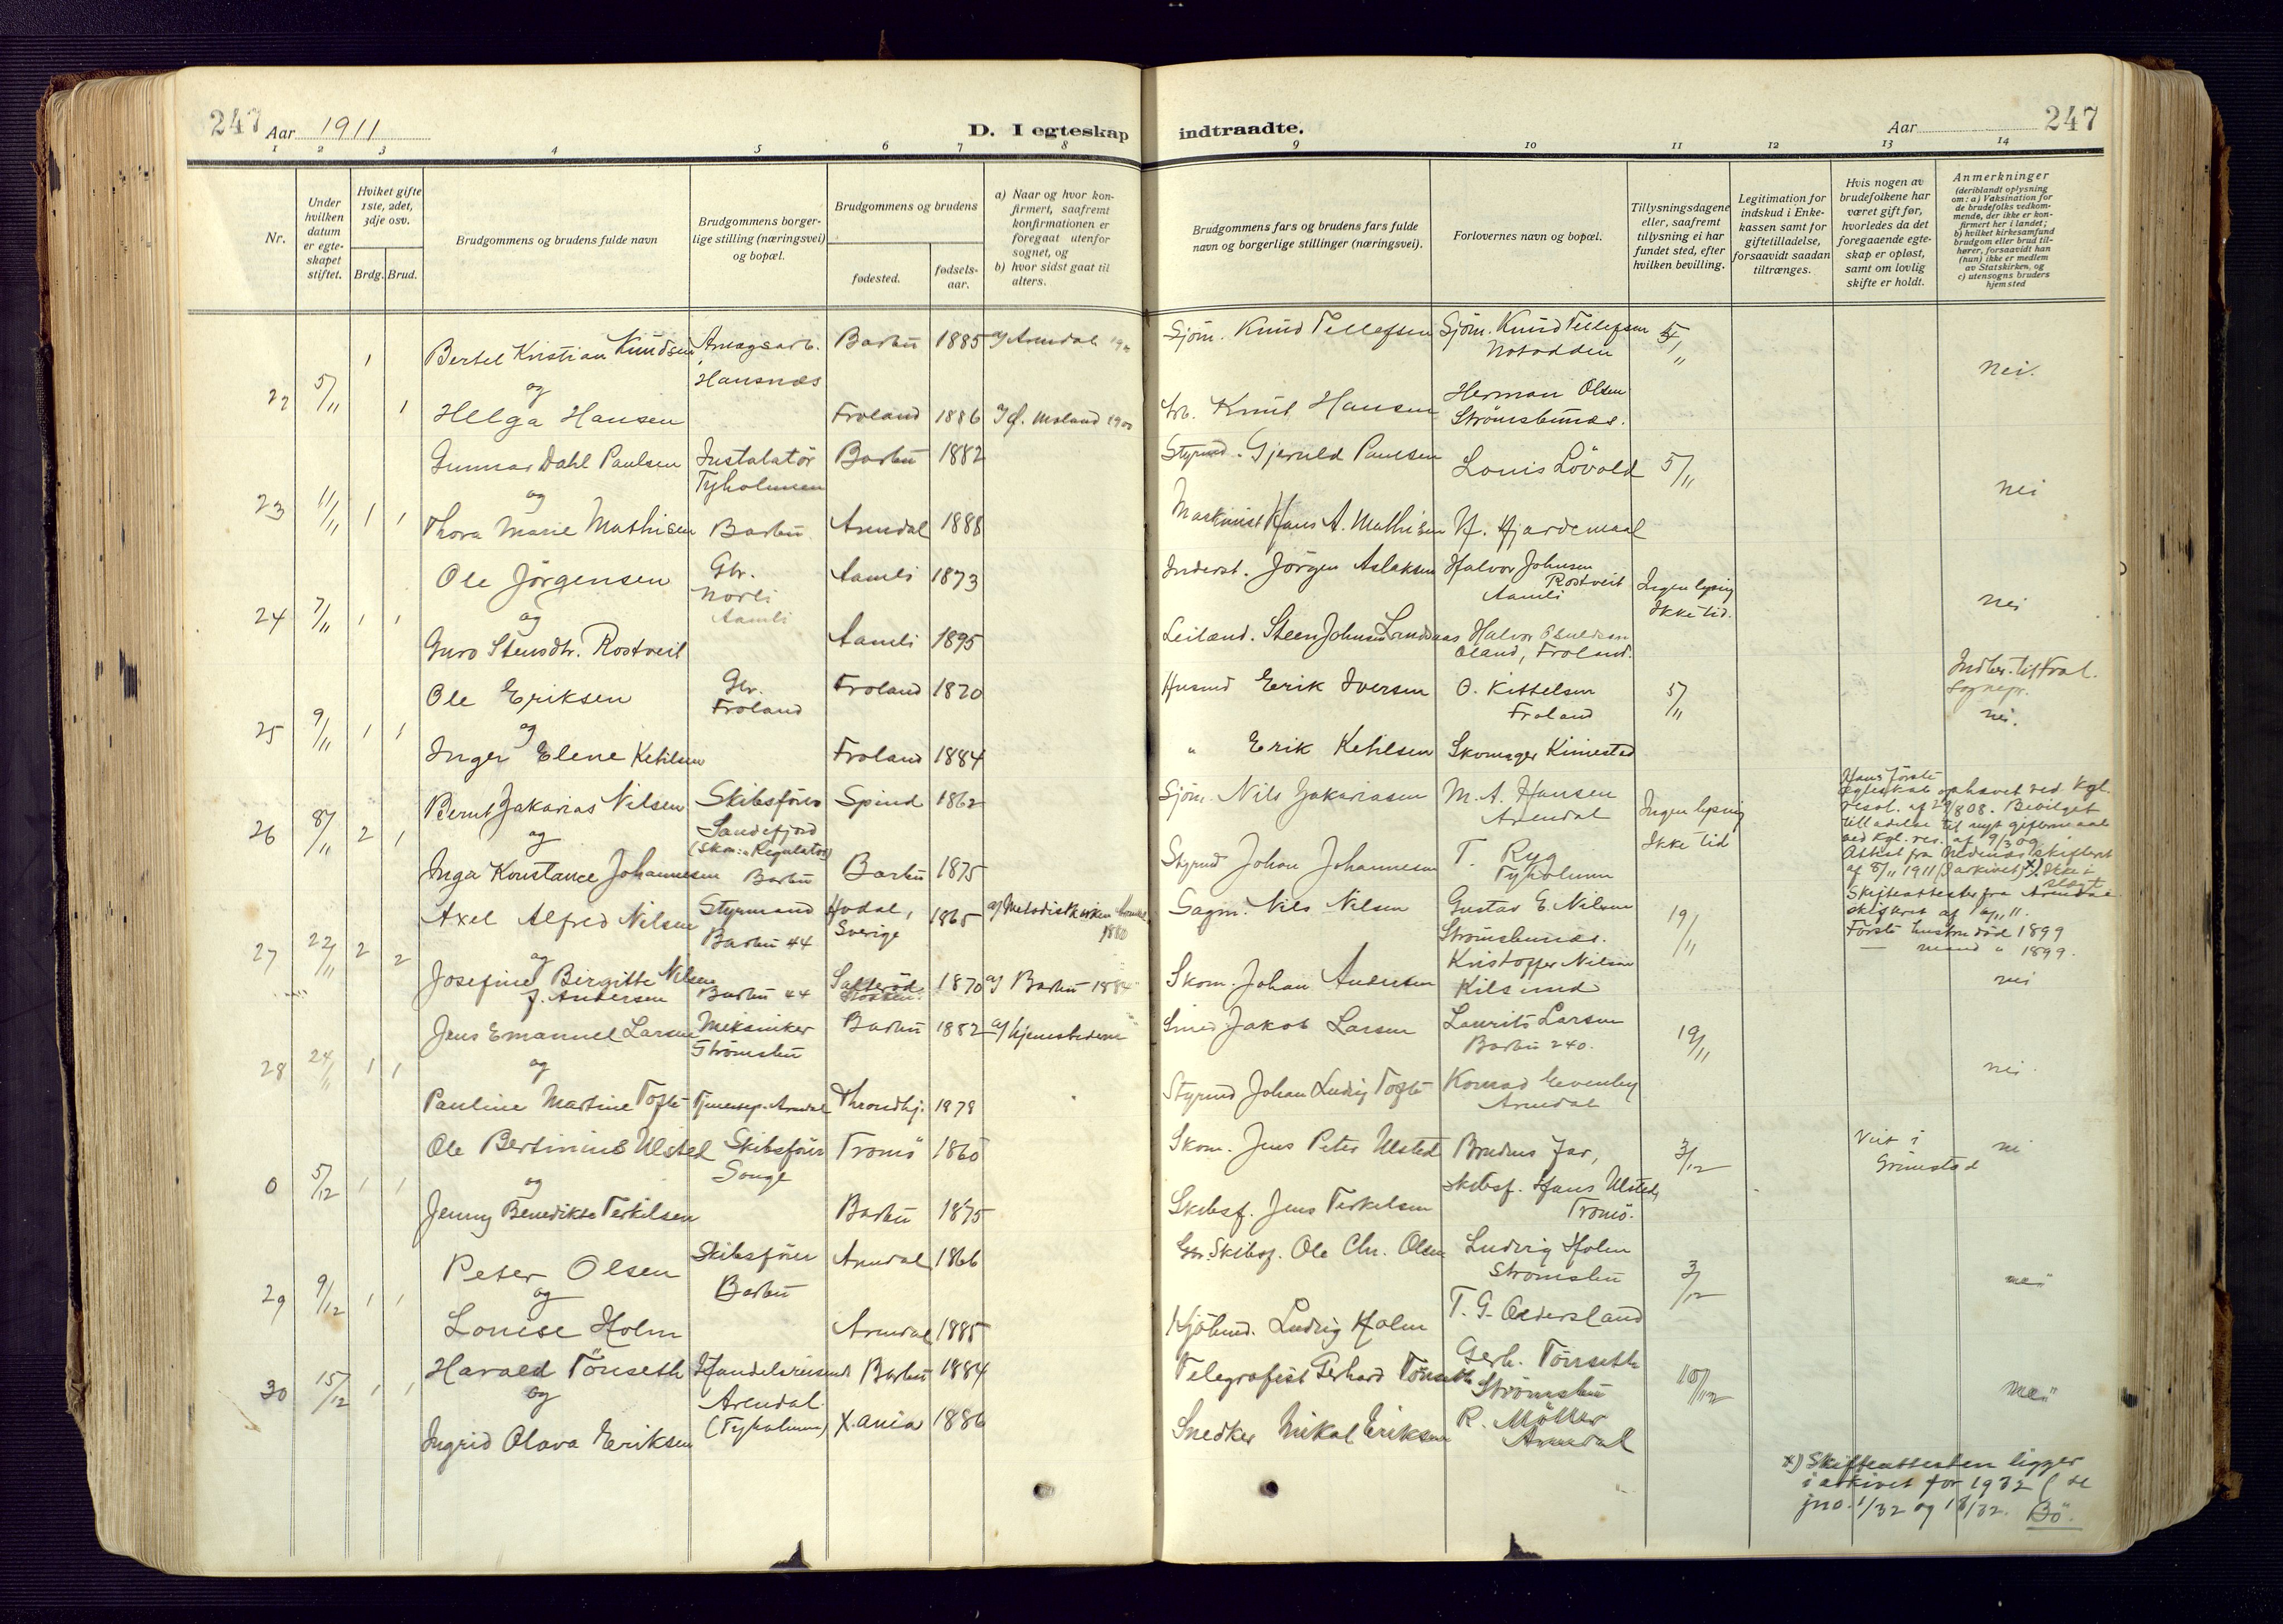 247 Aar 1911
D. I egteskap
indtraadte.
Aar 247
1 2 3 4 5 6 7 8 9 10 11 12 13 14
Nr.
Under
hvilken
datum
er egte-
skapet
stiftet.
Hviket gifte
1ste, 2det,
3dje osv.
Brdg. Brud.
Brudgommens og brudens fulde navn
Brudgommens borger-
lige stilling (næringsvei)
og bopæl.
Brudgommens og brudens
fødested.
fødsels-
aar.
a) Naar og hvor kon-
firmert, saafremt
konfirmationen er
foregaat utenfor
sognet, og
b) hvor sidst gaat til
alters.
Brudgommens fars og brudens fars fulde
navn og borgerlige stillinger (næringsvei).
Forlovernes navn og bopæl.
Tillysningsdagene
eller, saafremt
tillysning ei har
fundet sted, efter
hvilken bevilling.
Legitimation for
indskud i Enke-
kassen samt for
giftetilladelse,
forsaavidt saadan
tiltrænges.
Hvis nogen av
brudefolkene har
været gift før,
hvorledes da det
foregaaende egte-
skap er opløst,
samt om lovlig
skifte er holdt.
Anmerkninger
(deriblandt oplysning
om: a) Vaksination for
de brudefolks vedkom-
mende, der ikke er kon-
firmert her i landet;
b) hvilket kirkesamfund
brudgom eller brud til-
hører, forsaavidt han
(hun) ikke er medlem
av Statskirken, og
c) utensogns bruders
hjemsted
22 5/11 1 Bertel Kristian Knudsen Anlægsarb. Barbu 1885 a) Arendal Sjøm. Knud Tellefsen Sjøm. Knud Tellefsen 5/11
Hansnæs Notodden
og nei.
1 Helga Hansen Froland 1886 Moland 1900 Arb. Knut Hansen Herman Olsen
Strömsbunæs.
23 11/11 1 1 Gunnar Dahl Paulsen Instalatör Barbu 1882 Styrmd. Gjeruld Paulsen Louis Lövold 5/11
Tyholmen
og nei
Thora Marie Mathisen Barbu Arendal 1888 Maskinist Hans A. Mathisen N. Hjardemaal
24 7/11 1 1 Ole Jörgensen Gbr. Aamli 1873 Inderst. Jörgen Aslaksen Halvor Johnsen Ingen lysing
Norli Rostveit
Aamli Aamli Ikke tid.
og nei
Guro Stensdtr. Rostveit Aamli 1895 Leilænd. Steen Johnsen Halvor
Öland, Froland.
25 9/11 1 1 Ole Eriksen Gbr. Froland 1870 Husmd Erik Iversen O. Kittelsen 5/11
Froland Froland
Sognepr.
og nei.
Inger Elene Ketilsen Froland 1884 " Erik Ketilsen Skomager Kimestad
26 8/11 2 1 Bernt Zakarias Nilsen Skibsförer Spind 1862 Sjöm. Nils Zakariasen M. A. Hansen Ingen lysing
Sandefjord Arendal
og (Skon: "Regulator) Ikke tid
Inga Konstance Johannesen Barbu Barbu 1875 Styrmd Johan Johannesen T. Ryg
Tyholmen
Hans förste
egteskab ophævet ved Kgl.
resol. af 29/8 08. Bevilget
tilladelse til nyt giftermaal
ved kgl. res. af 9/3 09.
Attest fra Nedenæs skifteret
af 8/11 1911 (i arkivet) x) Ikke i
slægt
27 22/11 2 2 Axel Alfred Nilsen Styrmand Hodal, 1865 a) Metodistkirken Arendal Sagm. Nils Nilsen Gustav E. Nilsen 19/11
Barbu 44 Sverige 1880 Strömsbunæs.
og
Josefine Birgitte Nilsen Barbu 44 1870 a) Barbu 1884 Skom. Johan Andersen Kristoffer Nilsen
f. Andersen Kilsund
Skifteattester fra Arendals
skifteret
Förste hustru död 1899
— mand " 1899.
nei
28 24/11 1 1 Jens Emanuel Larsen Mekaniker Barbu 1882 a) hjemstederne Smed Jakob Larsen Laurits Larsen 19/11
Strömsbu Barbu 240.
og nei
Pauline Martine Tofte Tjenestep. Arendal Throndhj. 1879 Styrmd Johan Ludvig Tofte Konrad Evenby
Arendal
0 5/12 1 1 Ole Bertinius Ulsted Skibsförer Tromö 1860 Skom. Jens Peter Ulsted Brudens far, 3/12
Songe skibsf. Hans Ulsted,
og Tromö.
Jenny Benedikte Terkelsen Barbu 1875 Skibsf. Jens Terkelsen
Viet i
Grimstad
29 9/12 1 1 Peter Olsen Skibsförer Arendal 1866 Skibsf. Ole Chr. Olsen Ludvig Holm 3/12
Barbu Strömsbu
og nei
Louise Holm Arendal 1885 Kjöbmd. Ludvig Holm T. G. Oddersland
30 15/12 1 1 Harald Tönseth Handelsreisende Barbu 1884 Telegrafist Gerhard Tönseth Gerh. Tönseth 10/12
og Arendal Strömsbu nei
Ingrid Olava Eriksen (Tyholmen) X.ania 1886 Snedker Mikal Eriksen R. Möller
Arendal
x) Skifteattesten ligger
i arkivet for 1932 (se
jno. 1/32 og 18/32. Bö.